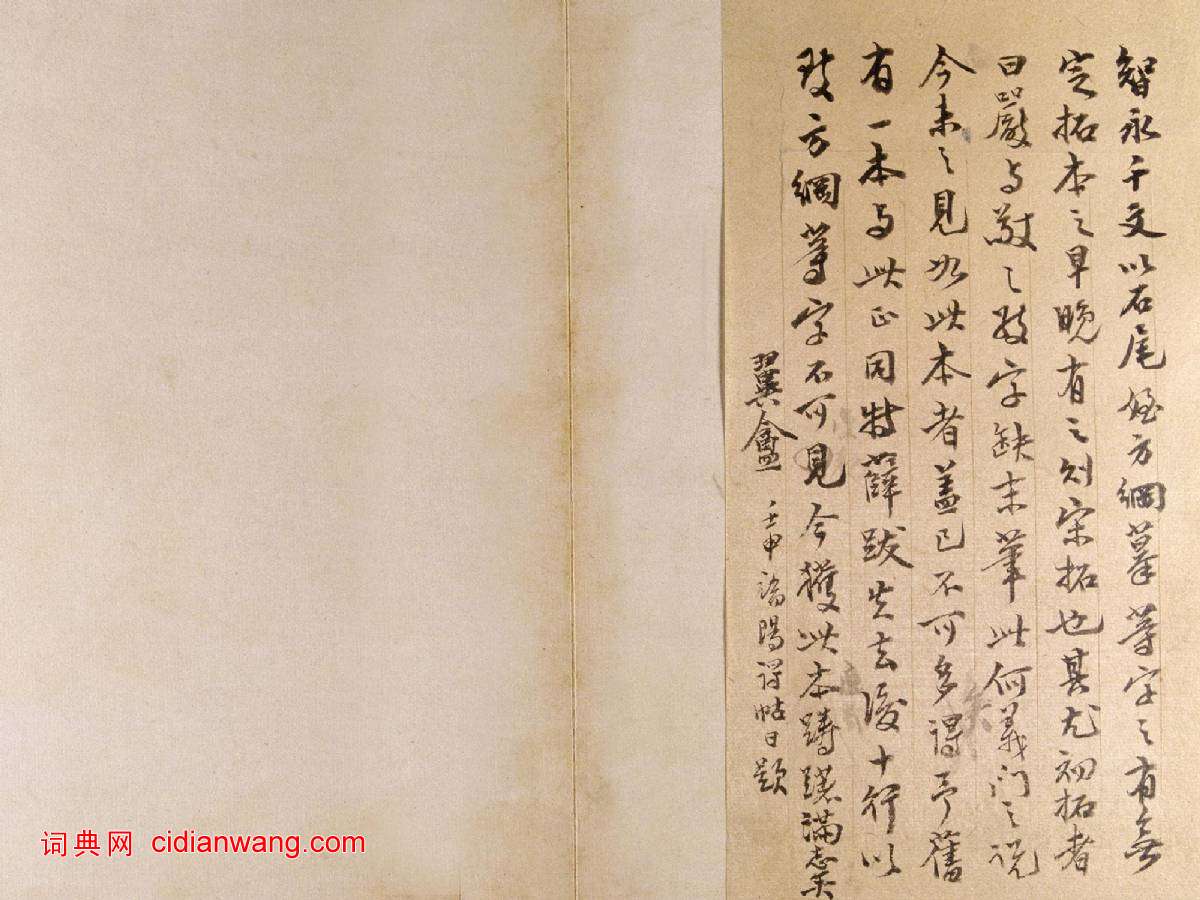 智永千文以石尾姪方綱摹等字之有無
定拓本之早晚有之則宋拓也其尤初拓者
曰嚴与敬之敬字缺末筆此何義門之説
今未之見如此本者蓋已不可多得予舊
有一本与此正同特薛跋失去後十行以
致方綱等字不可見今獲此本躊躇滿志矣
翼盦 壬申端陽得帖日題
词典网 cidianwang.com